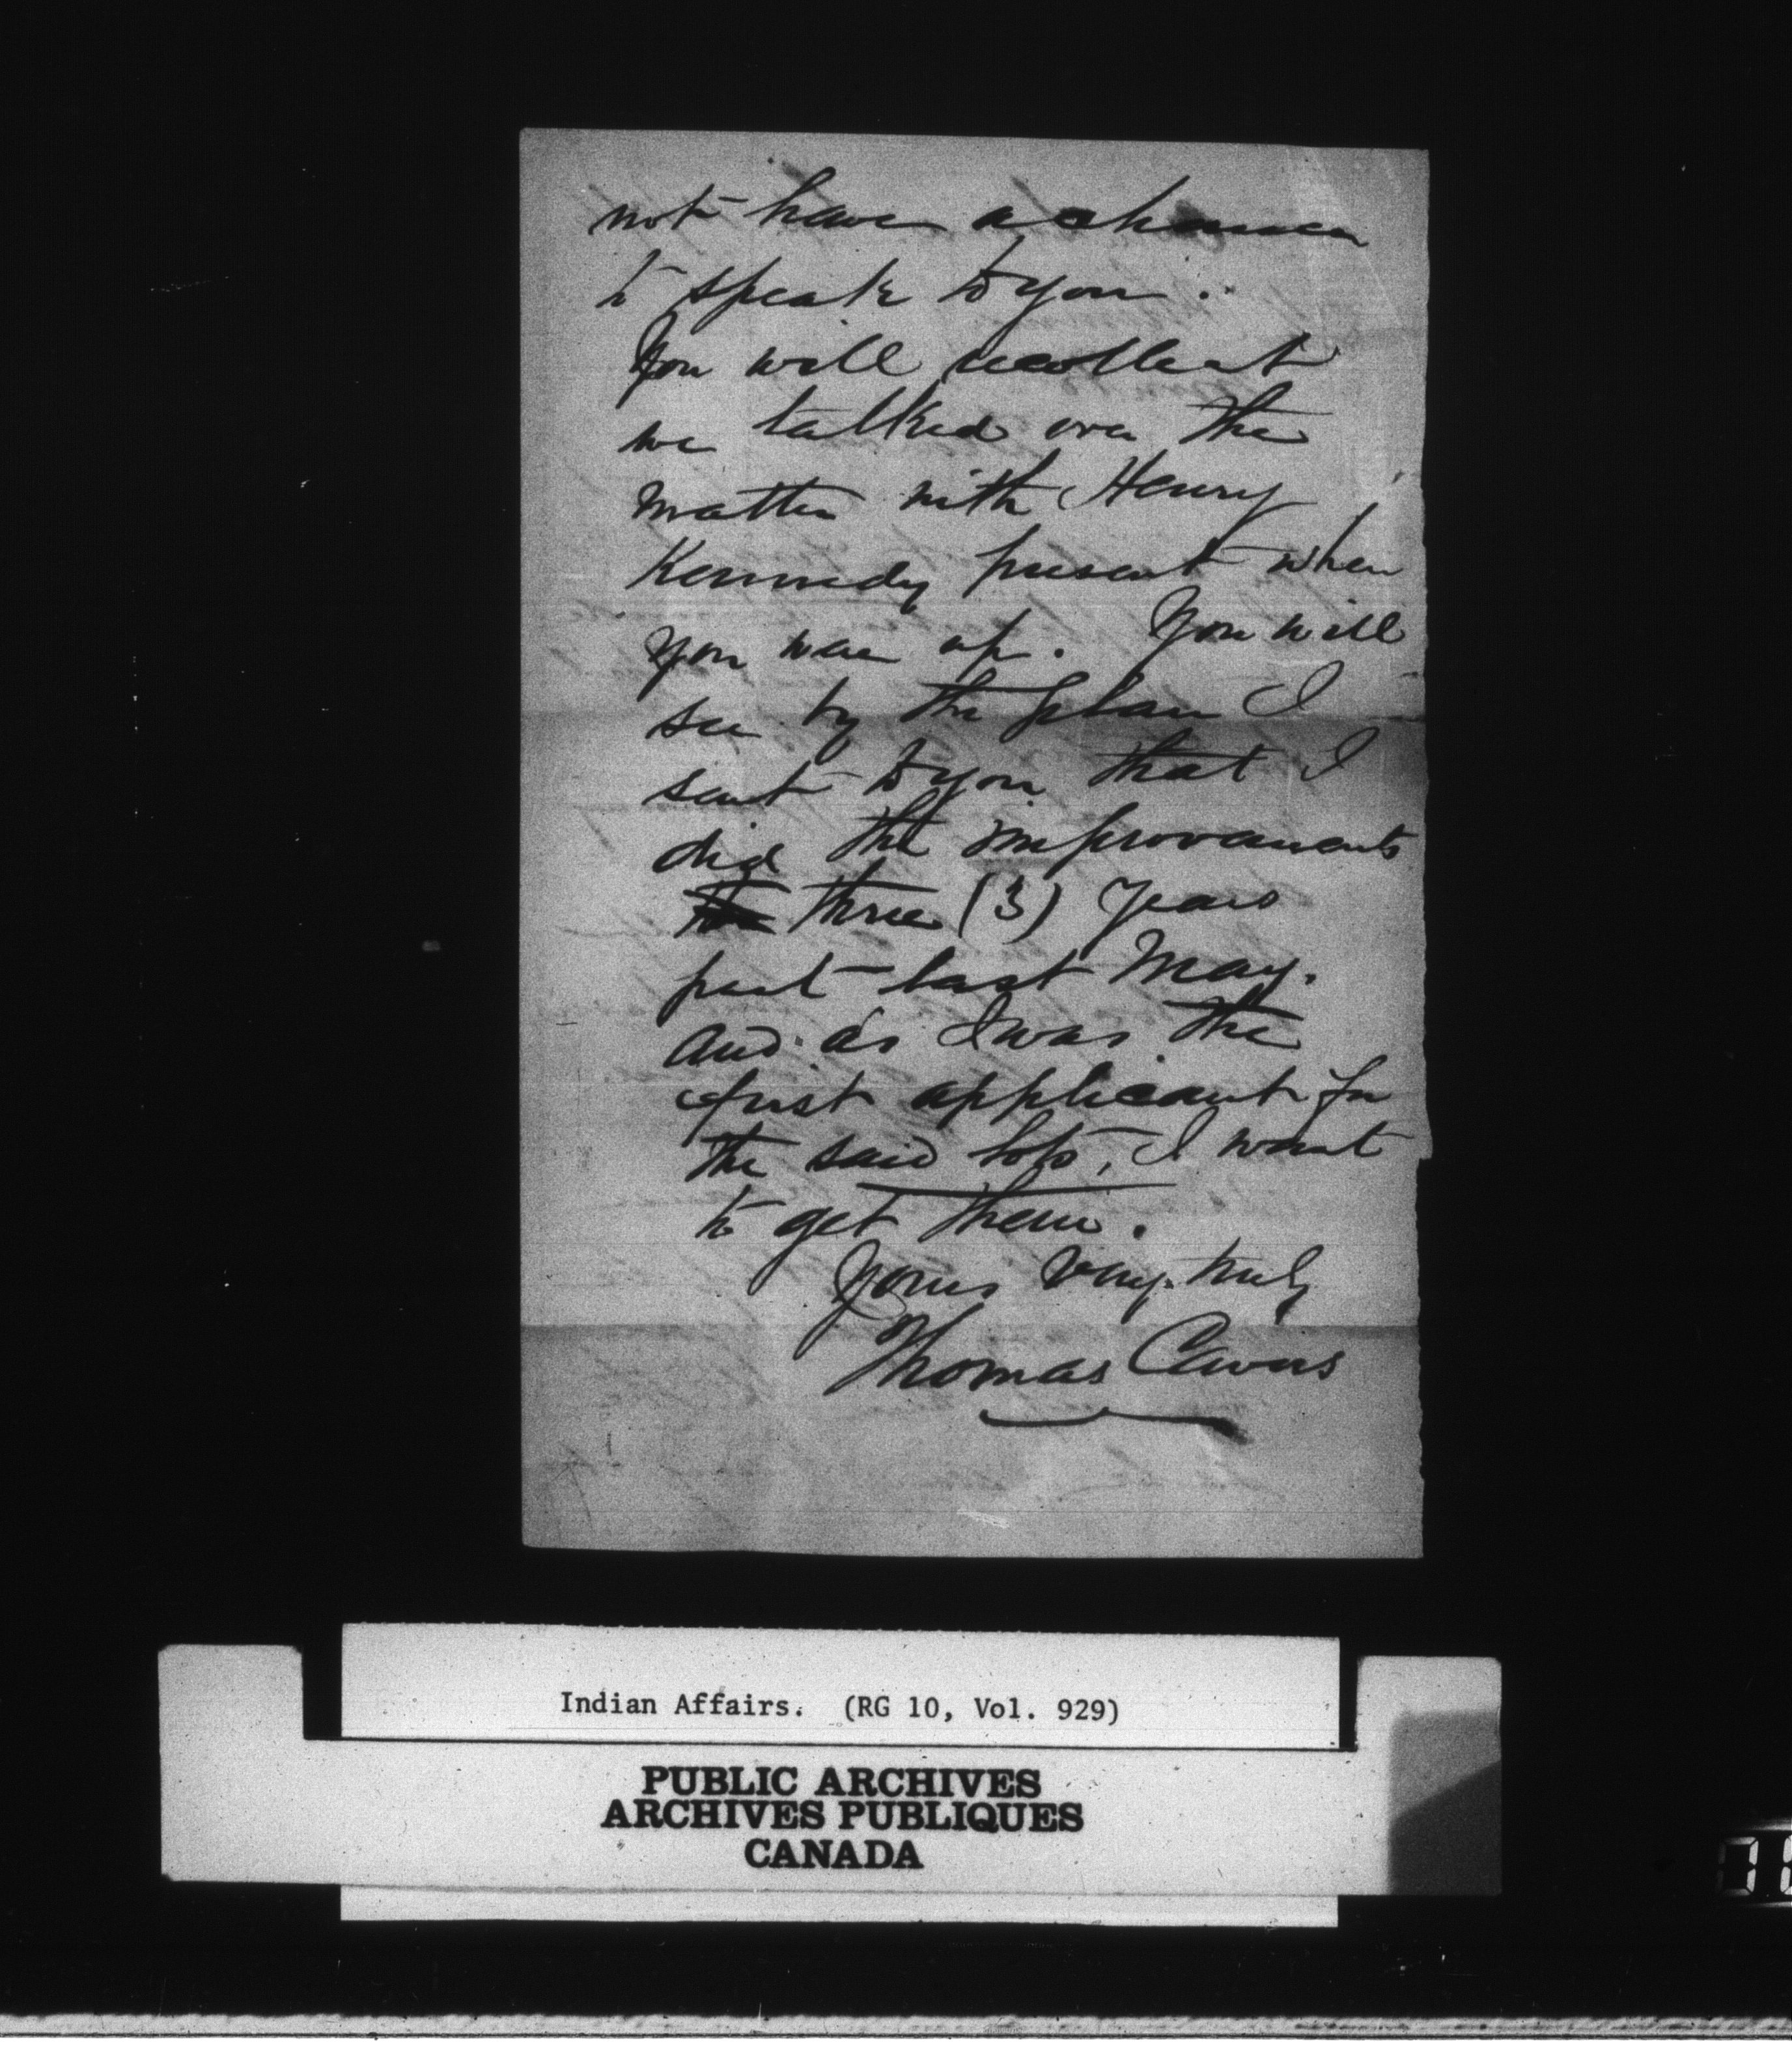 not have a chance
to speak to you.
You will recollect
we talked over the
matter with Henry
Kennedy present when
you was up. You will
see by the plan I
sent to you that I
did the improvements
three (3) years
past last May.
and as I was the
first applicant for
the said lots, I want
to get them.
Yours very truly
Thomas Cavers
Indian Affairs. (RG 10, Vol. 929)
PUBLIC ARCHIVES
ARCHIVES PUBLIQUES
CANADA